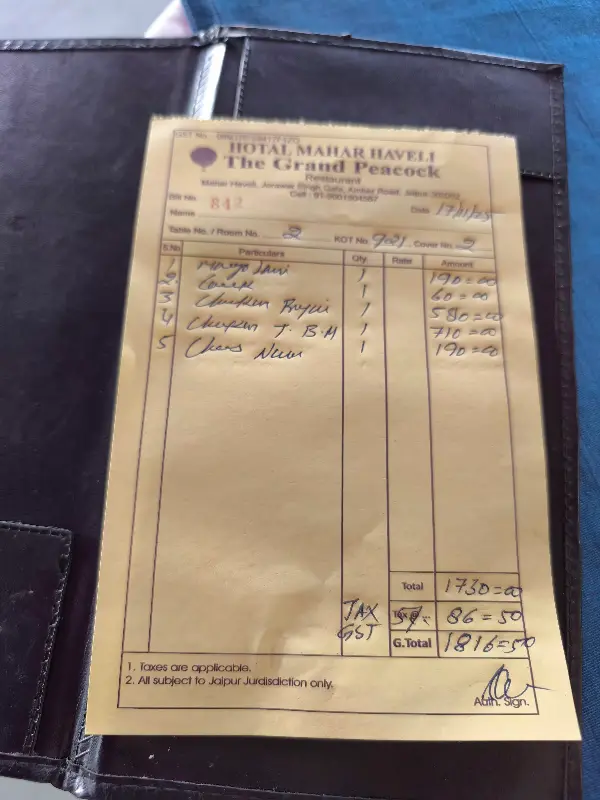 GST No.
HOTAL MAHAR HAVELI
The Grand Peacock
Restaurant
Mahar Haveli, Jorawar Singh Gate, Amber Road, Jaipur
Cell : 91-
Bill No. 842 Date 17/11/25
Name
Table No. / Room No. 2 KOT No. 9021 Cover No. 2
S.No Particulars Qty. Rate Amount
1 1 190=00
2 1 60=00
3 Chicken 1 580=00
4 Chicken T.B.M 1 710=00
5 Chees Naan 1 190=00
Total 1730=00
TAX Tax @ 5% 86=50
GST G.Total 1816=50
1. Taxes are applicable.
2. All subject to Jaipur Jurdisdiction only.
Auth. Sign.